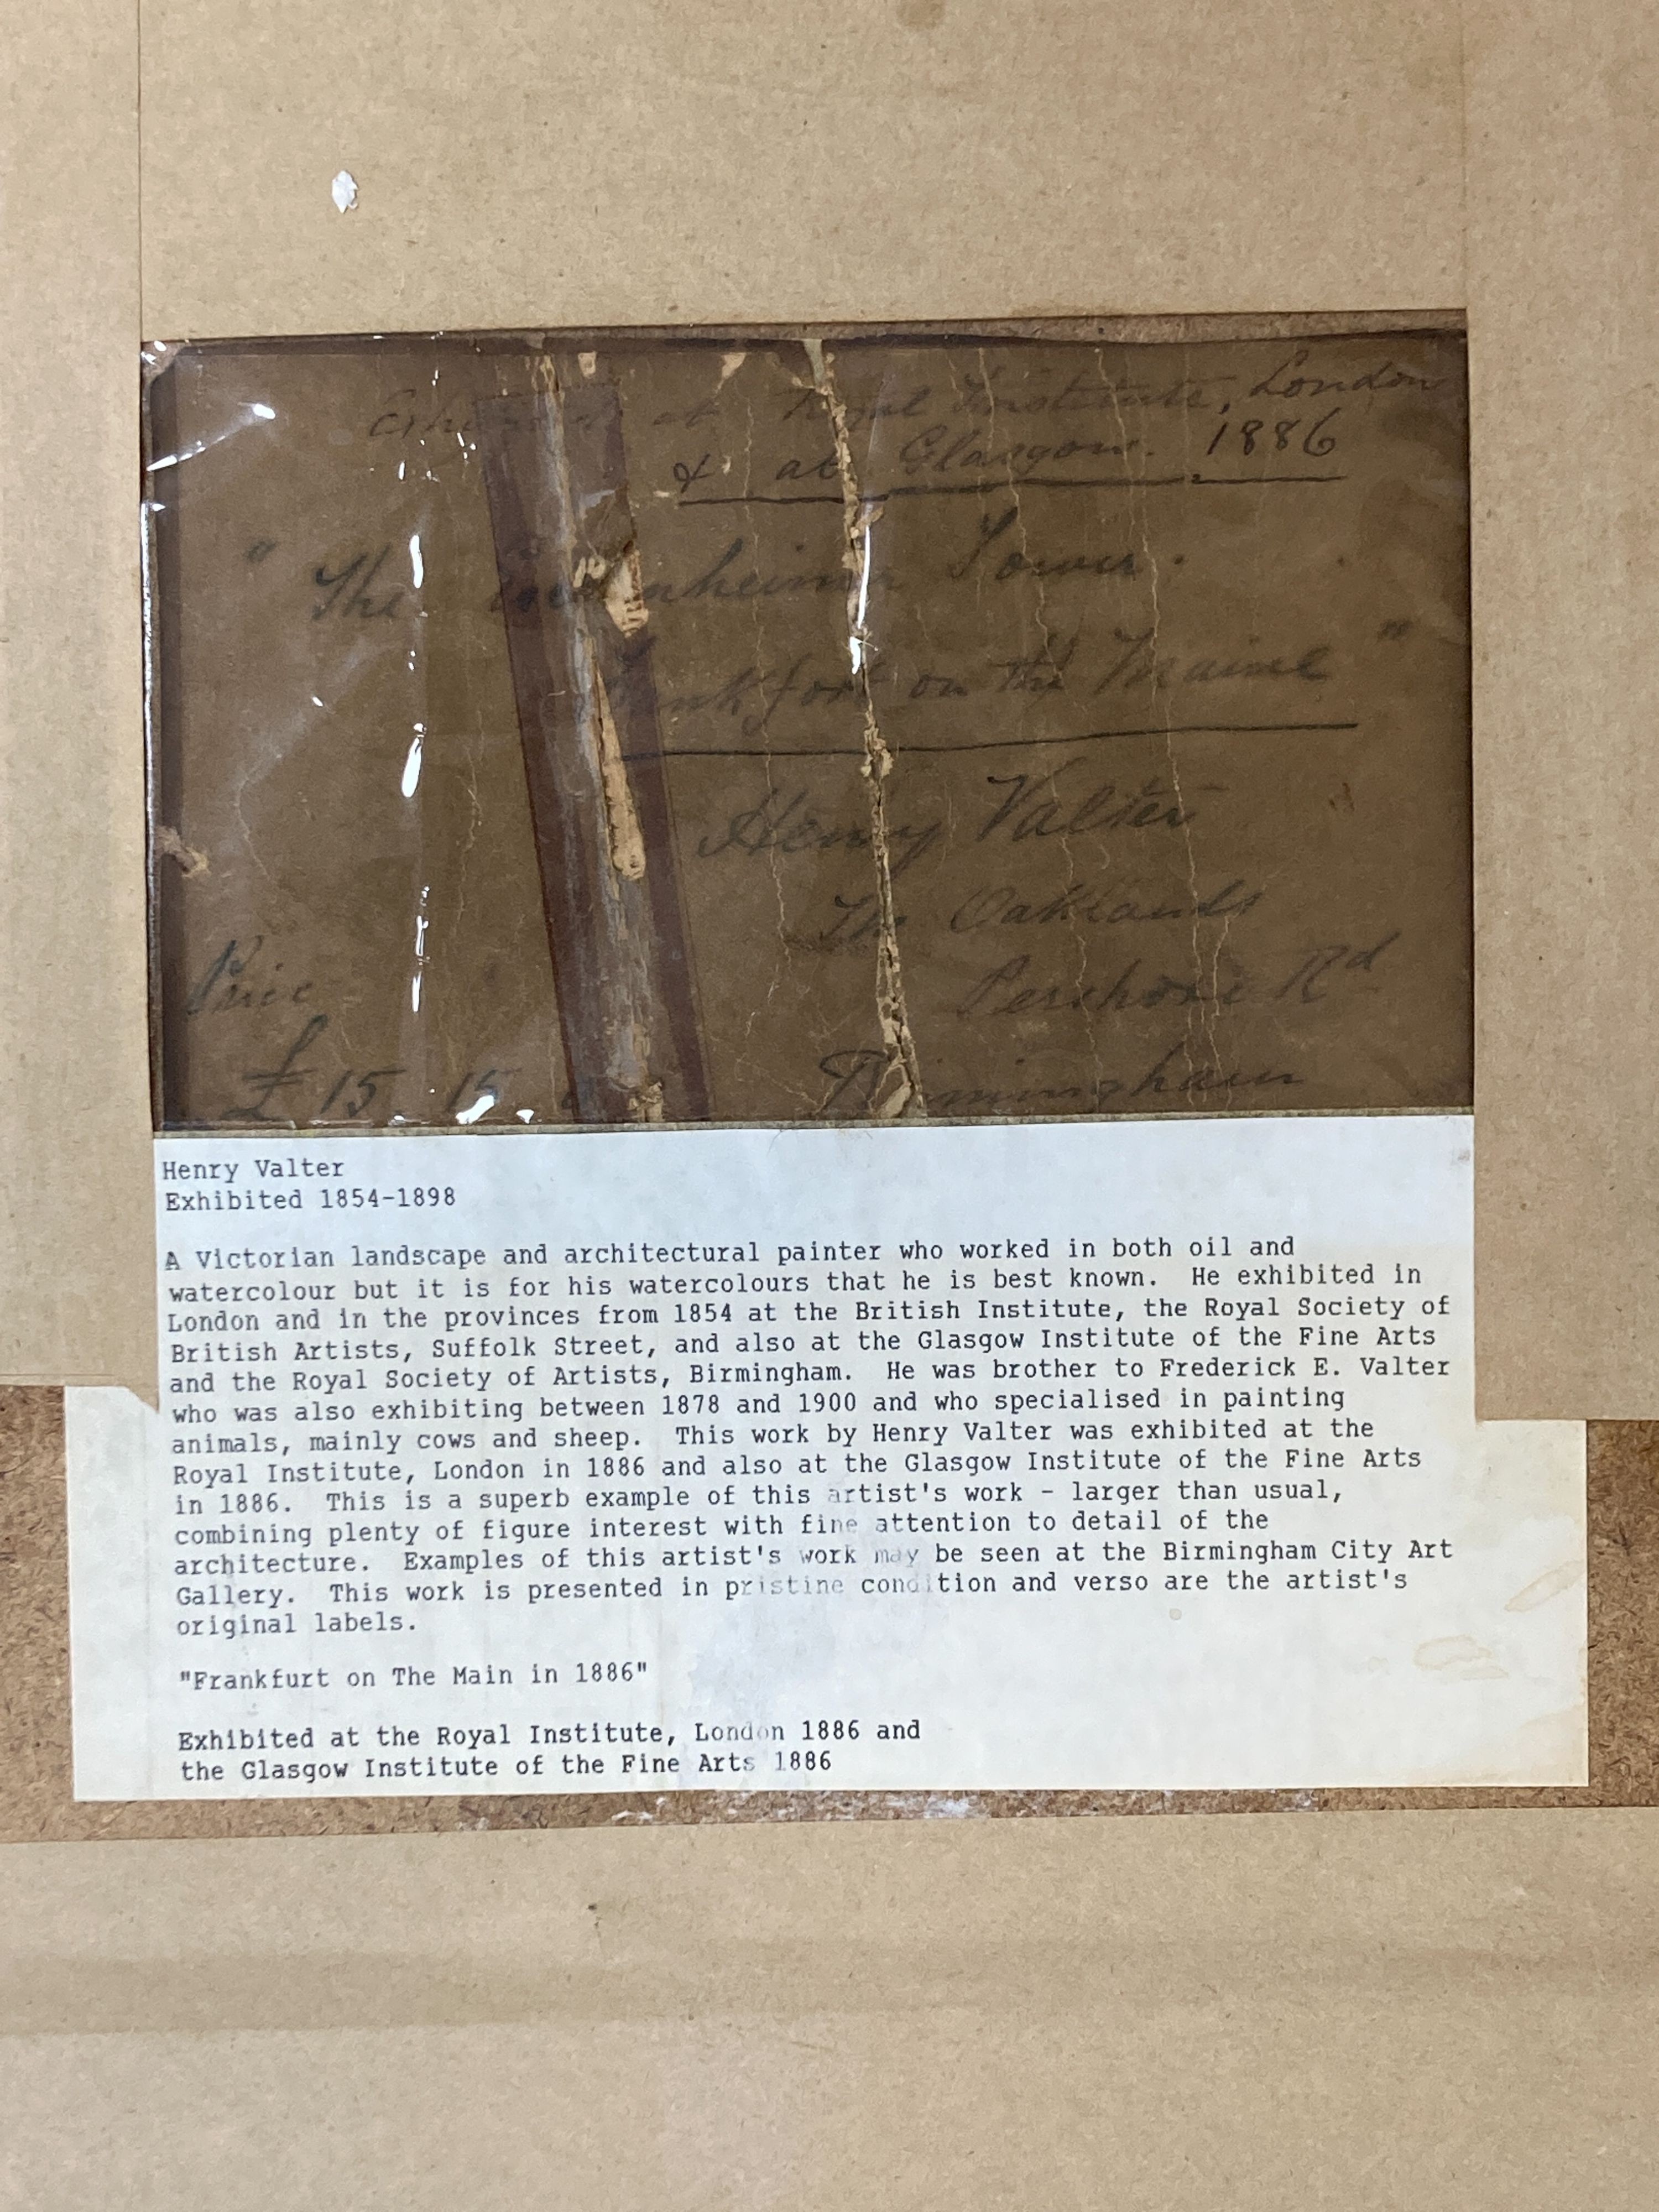 Exhibited at Royal Institute, London
& at Glasgow. 1886
"The Tower.
on the Maine"
Henry Valter
The Oaklands
Pershore Rd
Birmingham
Price
£15 15
Henry Valter
Exhibited 1854-1898
A Victorian landscape and architectural painter who worked in both oil and
watercolour but it is for his watercolours that he is best known. He exhibited in
London and in the provinces from 1854 at the British Institute, the Royal Society of
British Artists, Suffolk Street, and also at the Glasgow Institute of the Fine Arts
and the Royal Society of Artists, Birmingham. He was brother to Frederick E. Valter
who was also exhibiting between 1878 and 1900 and who specialised in painting
animals, mainly cows and sheep. This work by Henry Valter was exhibited at the
Royal Institute, London in 1886 and also at the Glasgow Institute of the Fine Arts
in 1886. This is a superb example of this artist's work - larger than usual,
combining plenty of figure interest with fine attention to detail of the
architecture. Examples of this artist's work may be seen at the Birmingham City Art
Gallery. This work is presented in pristine condition and verso are the artist's
original labels.
"Frankfurt on The Main in 1886"
Exhibited at the Royal Institute, London 1886 and
the Glasgow Institute of the Fine Arts 1886